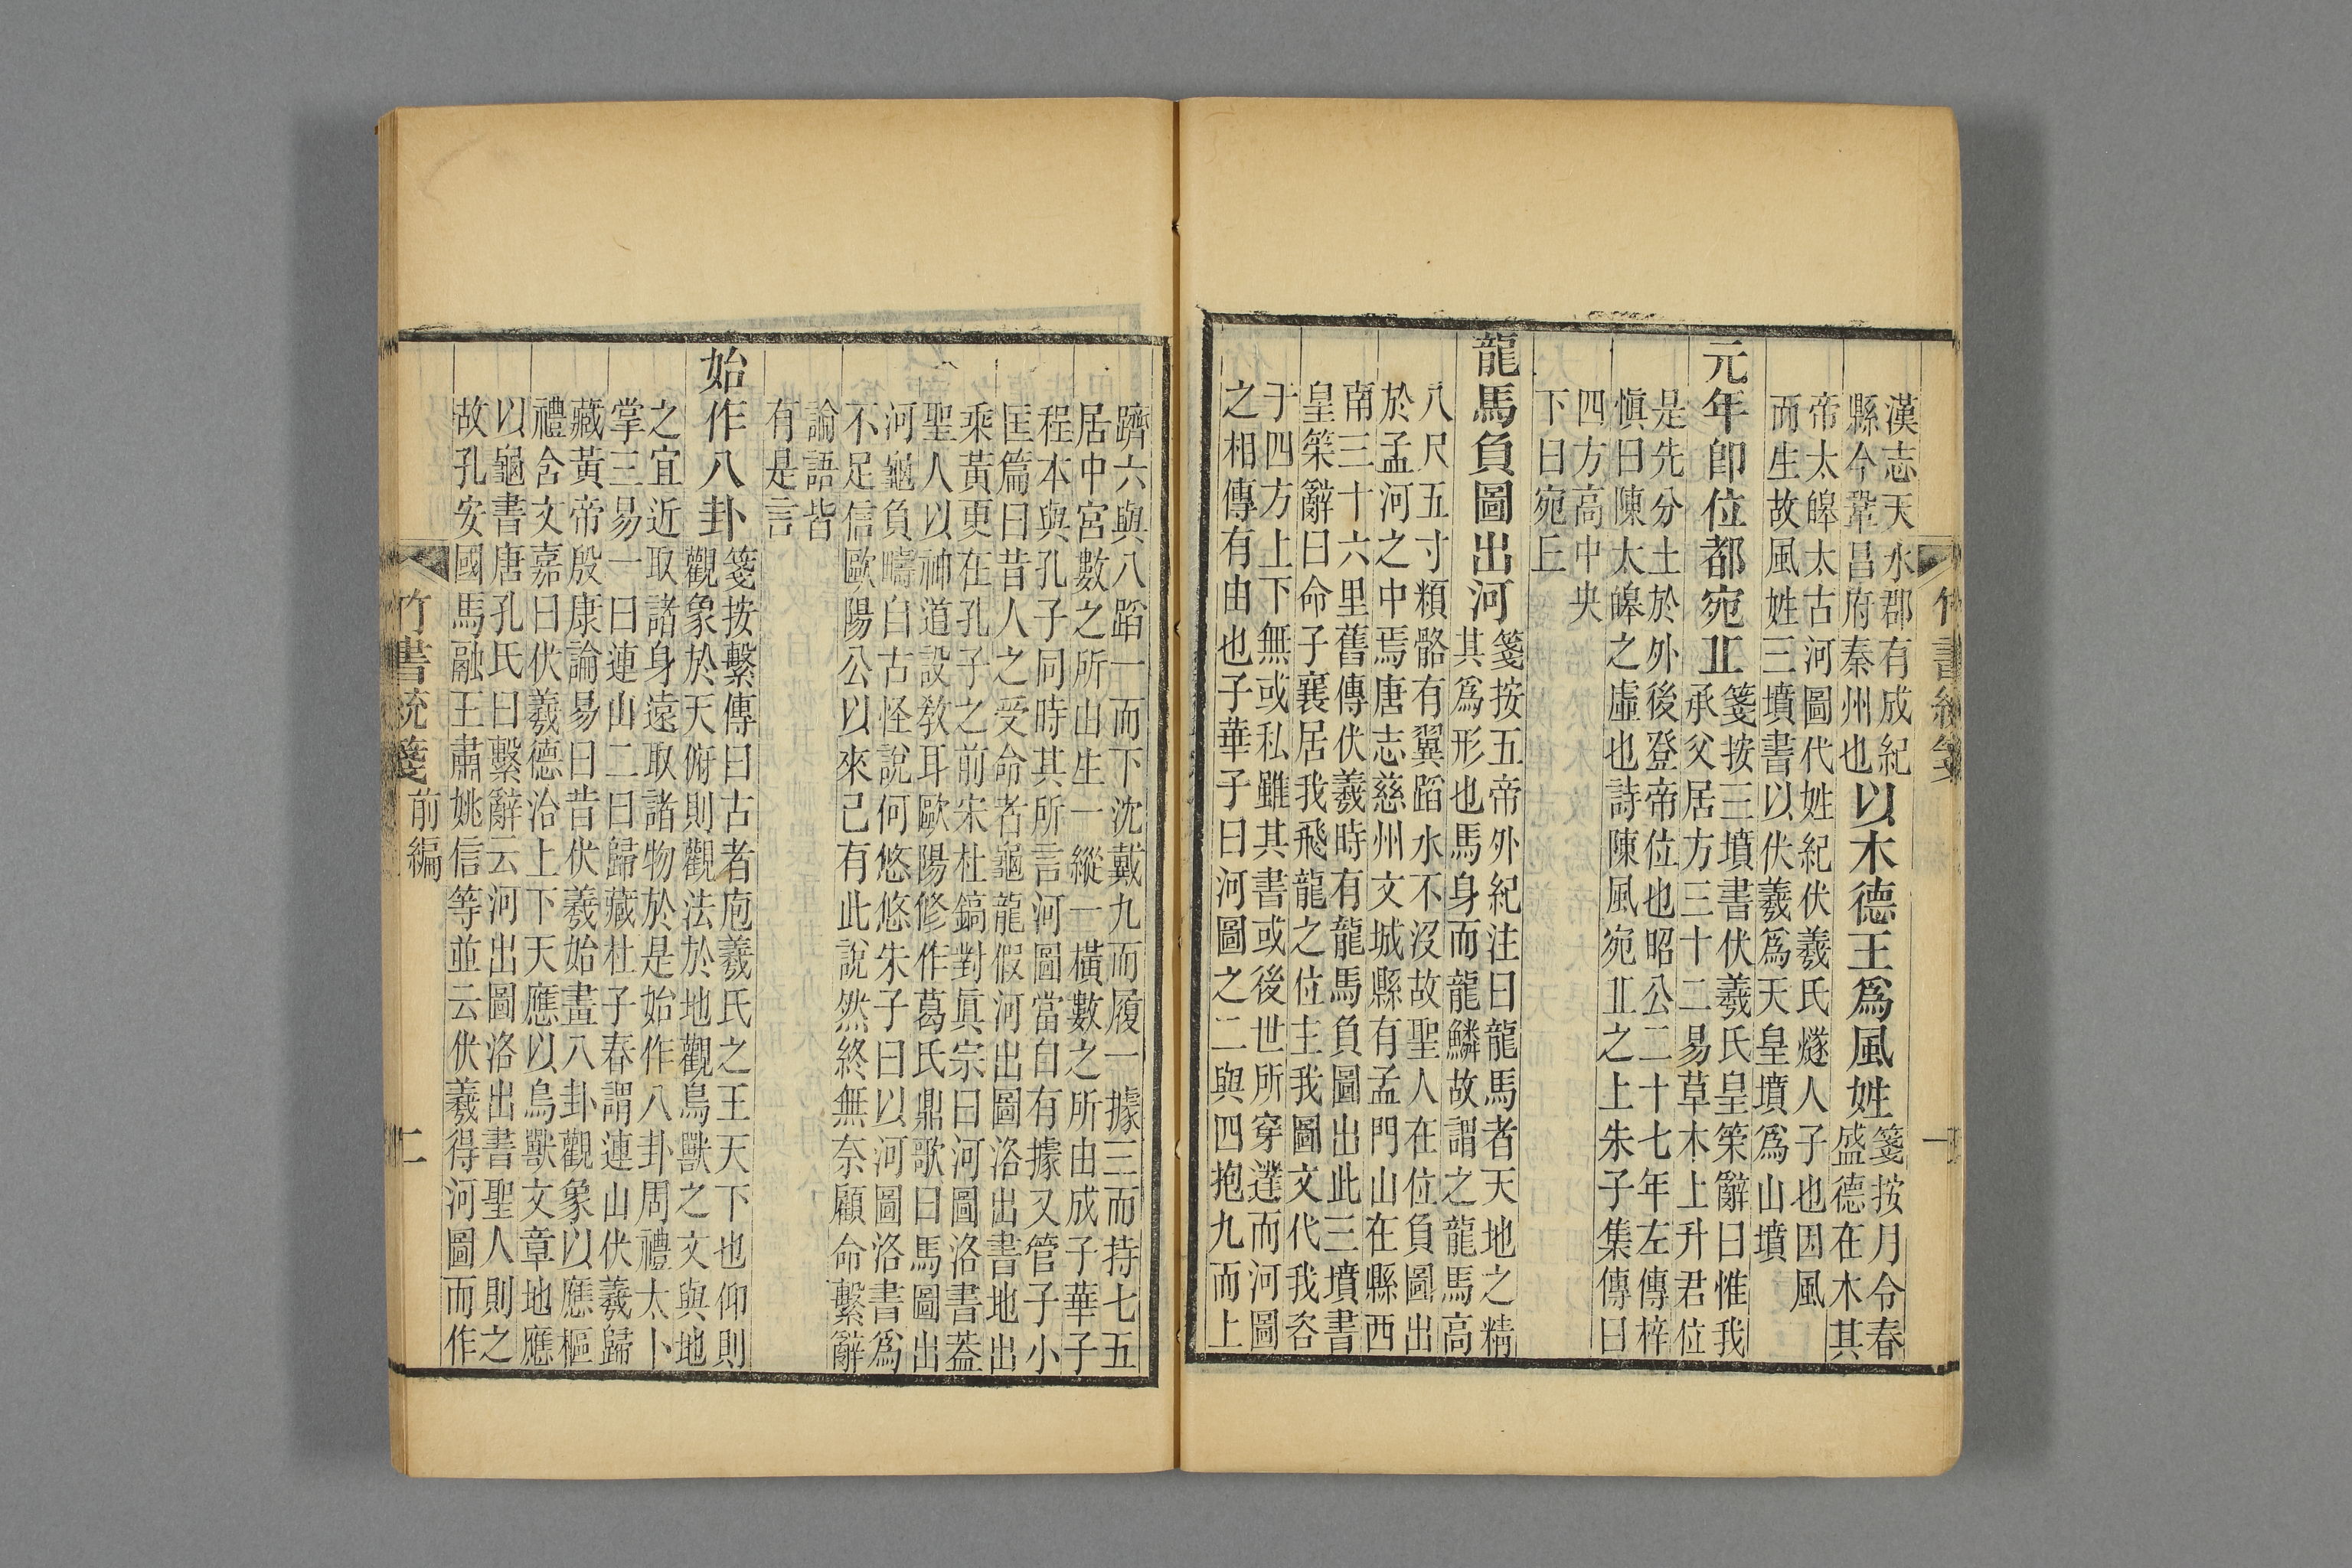 漢志天水郡有成紀
縣今鞏昌府秦州也以木德王為風姓箋按月令春
盛德在木其
帝太皞太古河圖代姓紀伏羲氏燧人子也因風
而生故風姓三墳書以伏羲為天皇墳為山墳
元年卽位都宛丘箋按三墳書伏羲氏皇䇿辭曰惟我
承父居方三十二易草木上升君位
是先分土於外後登帝位也昭公二十七年左傳梓
慎曰陳太皞之虛也詩陳風宛丘之上朱子集傳曰
四方高中央
下曰宛丘
龍馬負圖出河箋按五帝外紀注曰龍馬者天地之精
其為形也馬身而龍鱗故謂之龍馬高
八尺五寸類骼有翼蹈水不沒故聖人在位負圖出
於孟河之中焉唐志慈州文城縣有孟門山在縣西
南三十六里舊傳伏羲時有龍馬負圖出此三墳書
皇䇿辭曰命子襄居我飛龍之位主我圖文代我咨
于四方上下無或私雖其書或後世所穿鑿而河圖
之相傳有由也子華子曰河圖之二與四抱九而上
躋六與八蹈一而下沈戴九而履一據三而持七五
居中宮數之所由生一縱一橫數之所由成子華子
程本與孔子同時其所言河圖當自有據又管子小
匡篇曰昔人之受命者龜龍假河出圖洛出書地出
乘黃更在孔子之前宋杜鎬對眞宗曰河圖洛書蓋
聖人以神道設敎耳歐陽修作葛氏鼎歌曰馬圖出
河龜負疇自古怪說何悠悠朱子曰以河圖洛書為
不足信歐陽公以來已有此說然終無奈顧命繫辭
論語皆
有是言
始作八卦箋按繫傳曰古者庖羲氏之王天下也仰則
觀象於天俯則觀法於地觀鳥獸之文與地
之宜近取諸身遠取諸物於是始作八卦周禮太卜
掌三易一曰連山二曰歸藏杜子春謂連山伏羲歸
藏黃帝殷康論易曰昔伏羲始畫八卦觀象以應樞
禮含文嘉曰伏羲德洽上下天應以鳥獸文章地應
以龜書唐孔氏曰繫辭云河出圖洛出書聖人則之
故孔安國馬融王肅姚信等並云伏羲得河圖而作
竹書統箋 前編 二